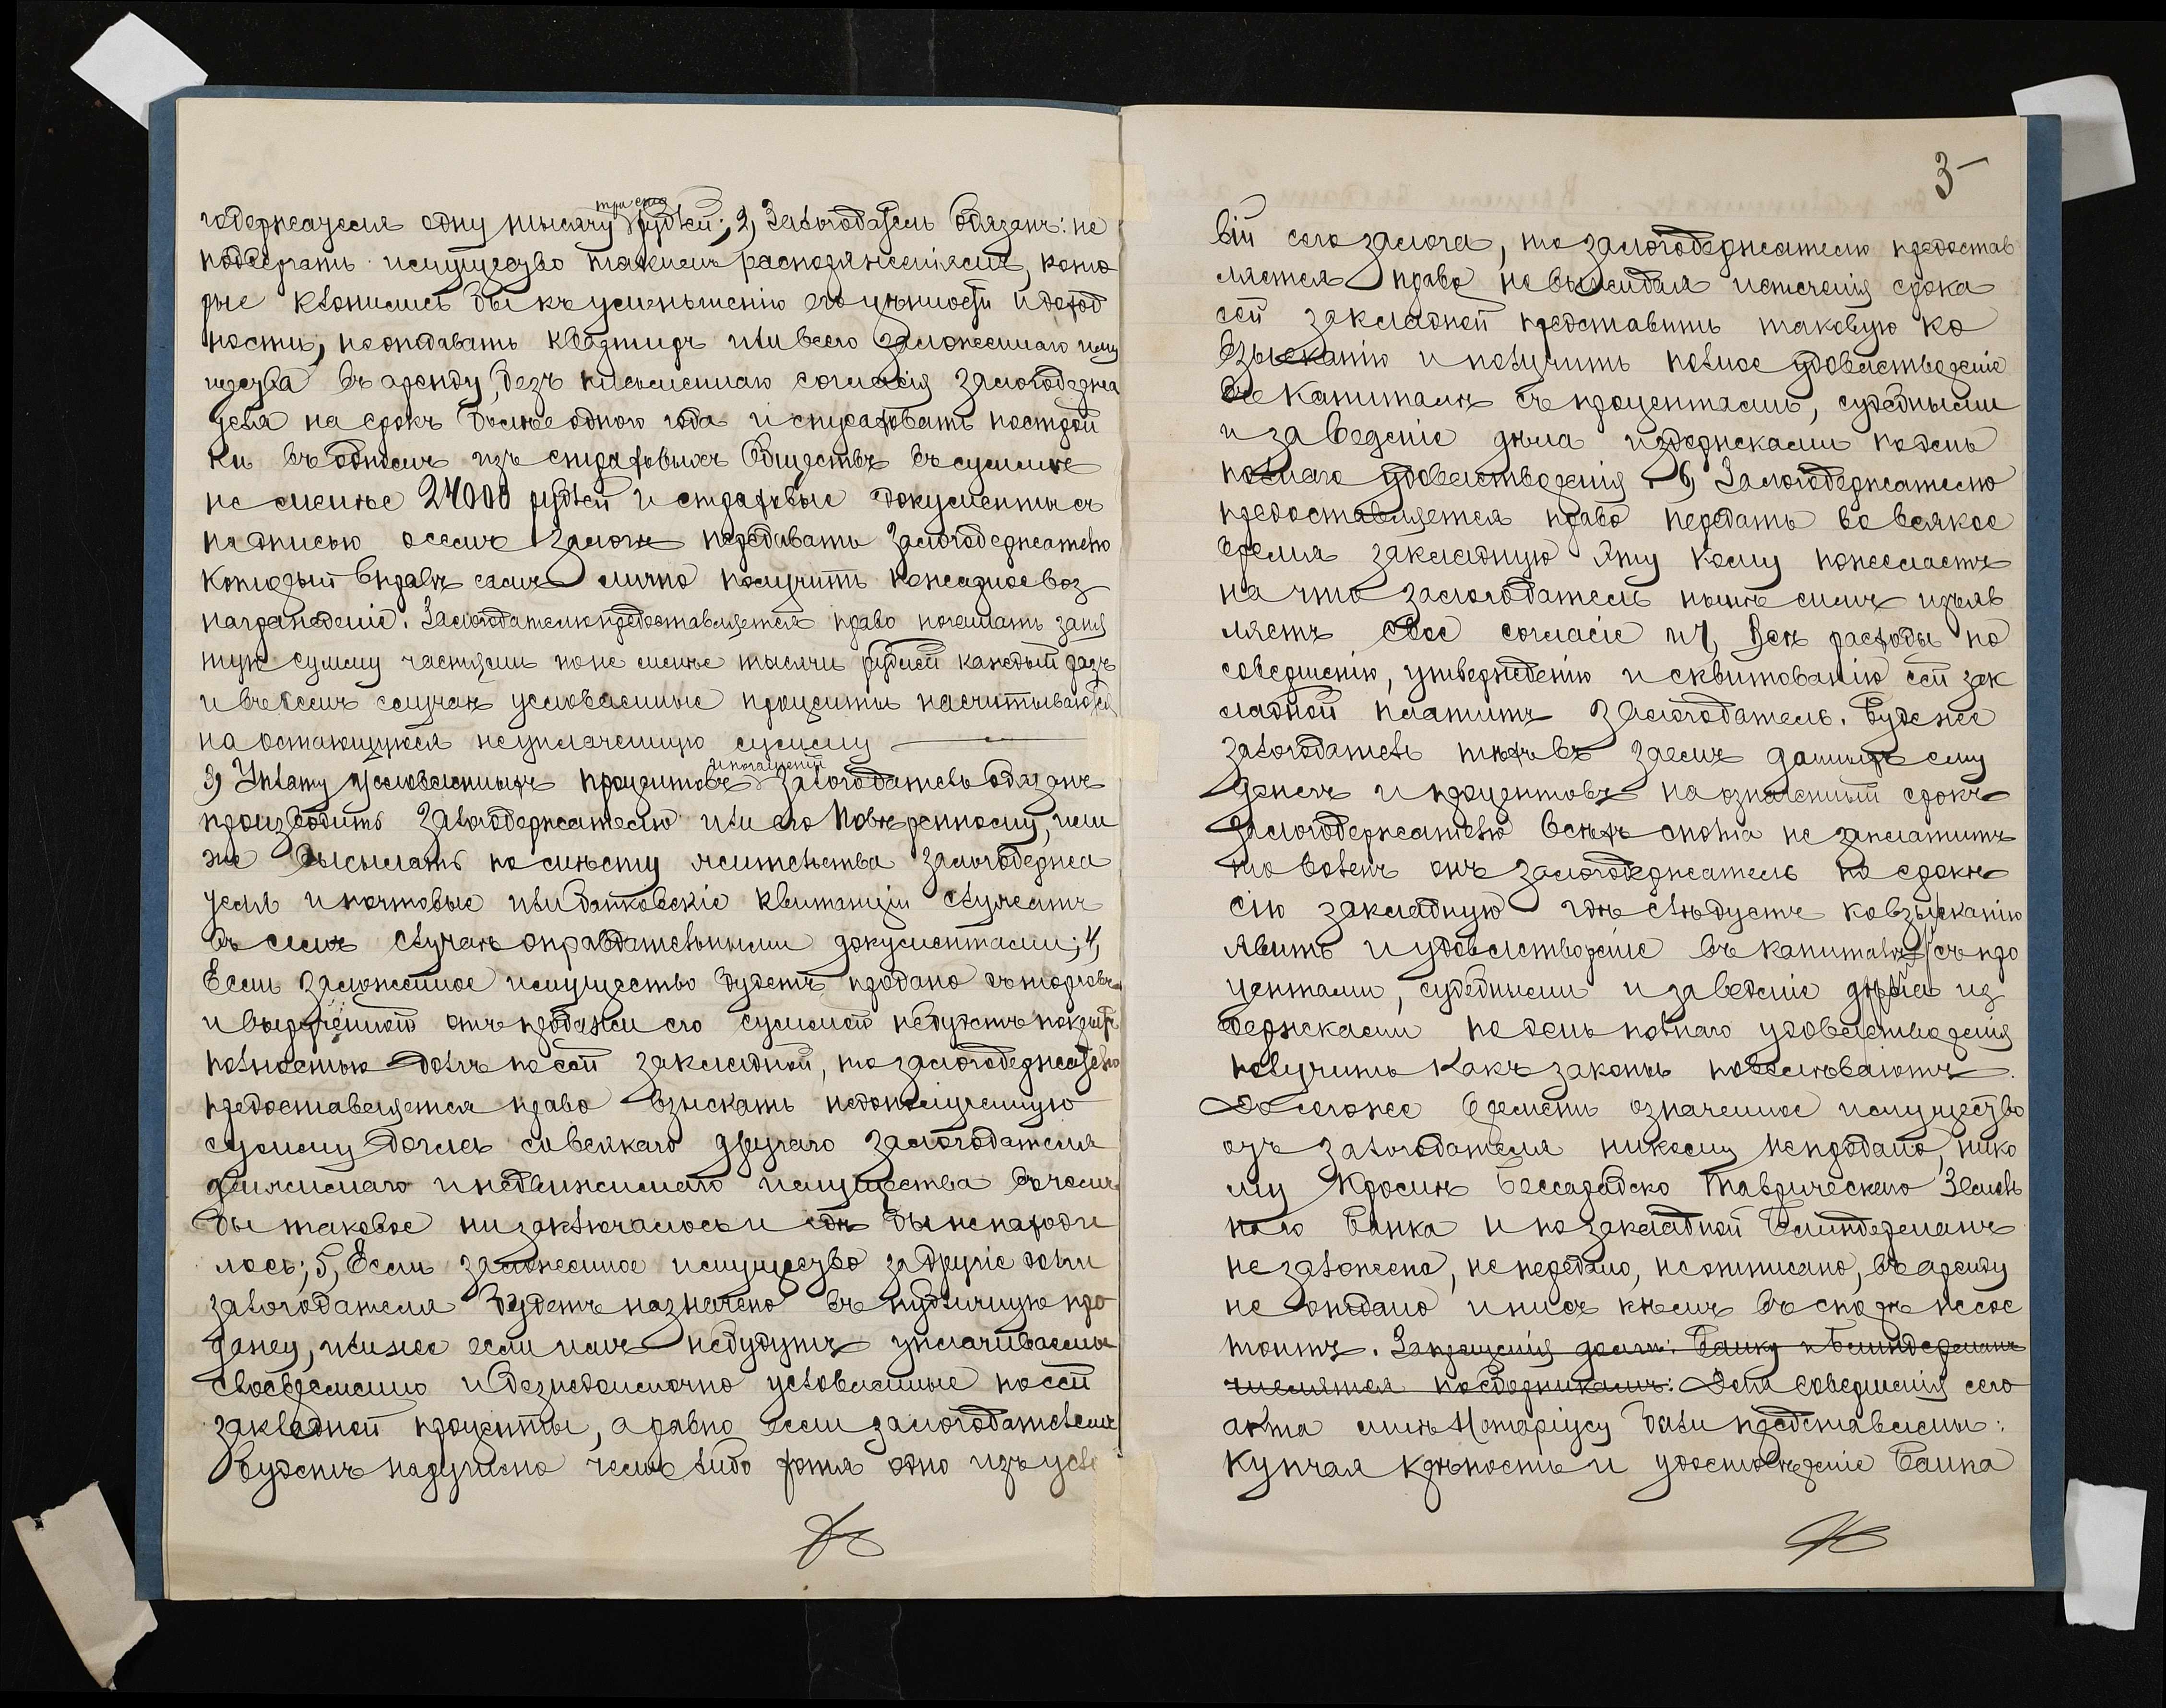 годержателя одну тысячу три ста рублей; 2, Залогодатель обязанъ: не
подвергать имущество такимъ распоряженіямъ, кото
рые клонились бы къ уменьшенію его цѣнности и доход
ности, не отдавать квартиръ или всего заложеннаго иму
щества въ аренду, безъ письменнаго согласія залогодержа
теля на срокъ болѣе одного года и страховать построй
ки въ одномъ изъ страховыхъ Обществъ въ суммѣ
не менѣе 24000 рублей и страховые документы съ
надписью о семъ залогѣ передавать залогодержателю
который вправѣ самъ лично получить пожарное воз
награжденіе. Залогодателю предоставляется право погашать заня
тую сумму частями по не менѣе тысячи рублей каждый разъ
и въ семъ случаѣ условленные проценты насчитываются
на остающуюся неуплаченную сумму
3, Уплату условленныхъ процентовъ и погашеній залогодатель обязанъ
производить залогодержателю или его повѣренному, или
же высылать по мѣсту жительства залогодержа
теля и почтовые или банковскіе квитанціи служатъ
въ семъ случаѣ оправдательными документами; 4,
Если заложенное имущество будетъ продано съ торговъ
и вырученной отъ продажи его суммой не будетъ покрытъ
полностью долгъ по сей закладной, то залогодержателю
предоставляется право взыскать недополученную
сумму долга со всякаго другаго залогодателя
движимаго и недвижимаго имущества въ чемъ
бы таковое ни заключалось и гдѣ бы не находи
лось; 5, Если заложенное имущество за другіе долги
залогодателя будетъ назначено въ публичную про
дажу, или же если имъ не будутъ уплачиваемы
своевременно и безнедоимочно условленные по сей
закладной проценты, а равно если залогодателемъ
будетъ нарушено чемъ либо хотя одно изъ усло
3
вій сего залога, то залогодержателю предостав
ляется право не выжидая истеченія срока
сей закладной представить таковую ко
взысканію и получить полное удовлетвореніе
въ капиталѣ съ процентами, судебными
и за веденіе дѣла издержками по день
полнаго удовлетворенія. 6, Залогодержателю
предоставляется право передать во всякое
время закладную эту кому пожелаетъ
на что залогодатель нынѣ симъ изъяв
ляетъ свое согласіе и 7, Всѣ расходы по
совершенію, утвержденію и сквитованію сей зак
ладной платитъ залогодатель. Буде же
залогодатель тѣхъ въ заемъ данныхъ ему
денегъ и процентовъ на означенный срокъ
залогодержателю всѣхъ сполна не заплатитъ
то воленъ онъ залогодержатель по срокѣ
сію закладную гдѣ слѣдуетъ ко взысканію
явить и удовлетвореніе въ капиталѣ съ про
центами, судебными и за веденіе дѣла из
держками по день полнаго удовлетворенія
получить какъ законы повелѣваютъ.
До сего же времени означенное имущество
отъ залогодателя никому не продано, нико
му кромѣ Бессарабско Таврическаго Земель
наго банка и по закладной
не заложено, не передано, не отписано, въ аренду
не отдано и ни съ кѣмъ въ спорѣ не сос
тоитъ. Запрещенія Банку
Для совершенія сего
акта мнѣ Нотаріусу были представлены:
Купчая крѣпость и удостовѣреніе банка